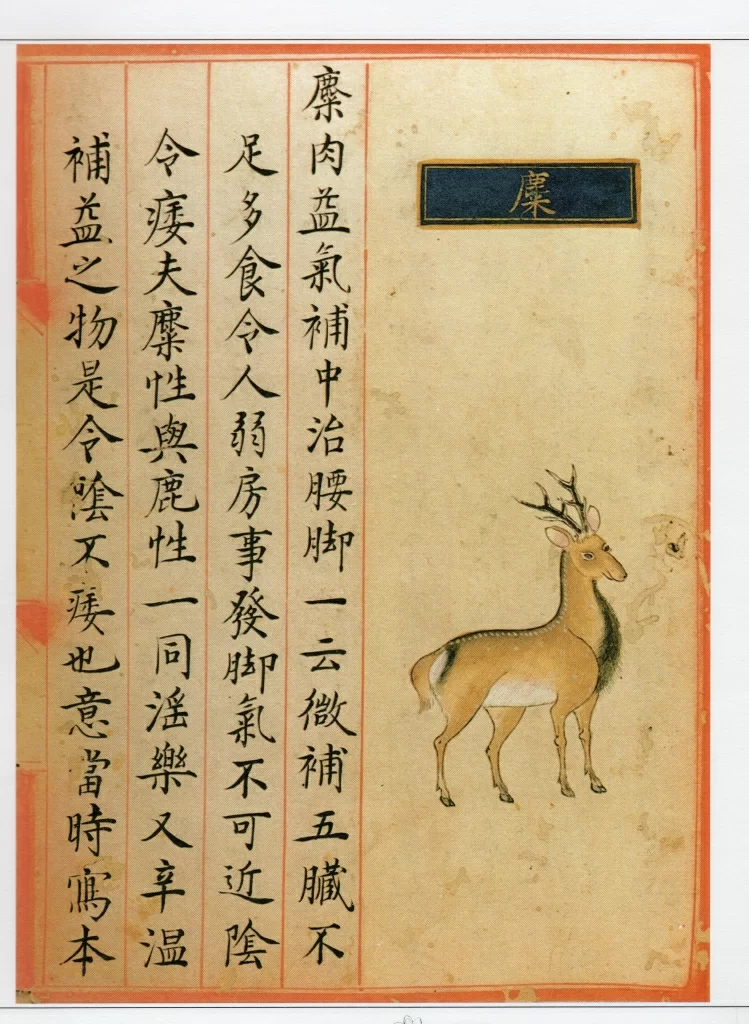 麋
麋肉益氣補中治腰脚一云微補五臓不
足多食令人弱房事發脚氣不可近陰
令痿夫麋性與鹿性一同淫樂又辛温
補益之物是令陰不痿也意當時寫本